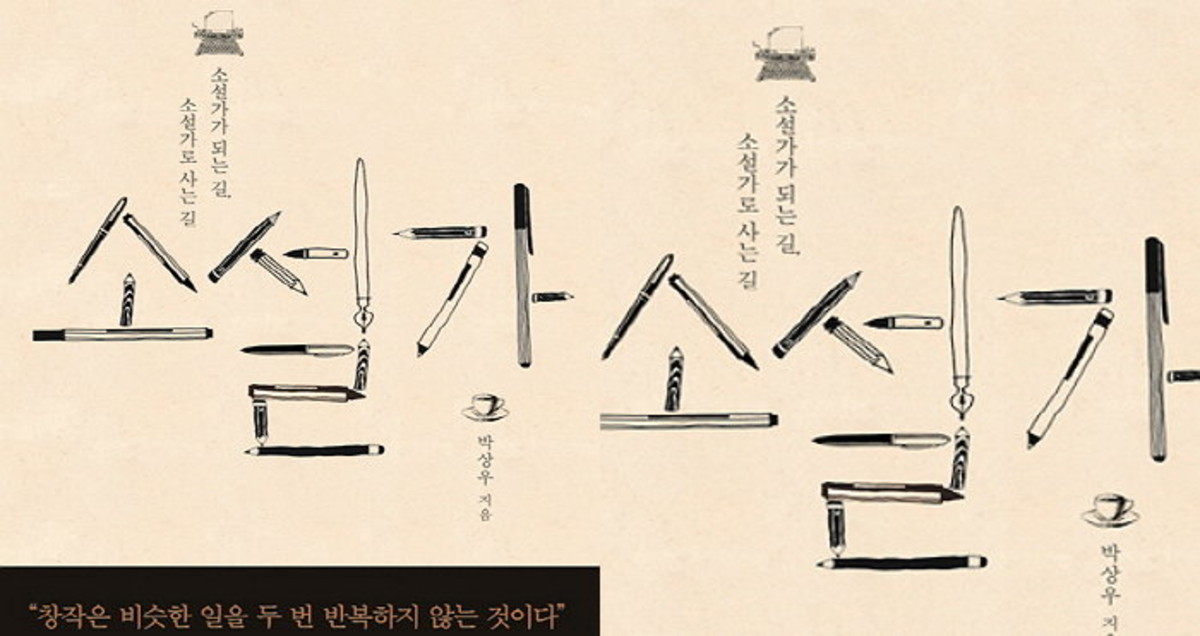 소설가가 되는 길,
소설가로 사는 길
소설가
박상우 지음
“창작은 비슷한 일을 두 번 반복하지 않는 것이다”
소설가가 되는 길,
소설가로 사는 길
소설가
박상우 지